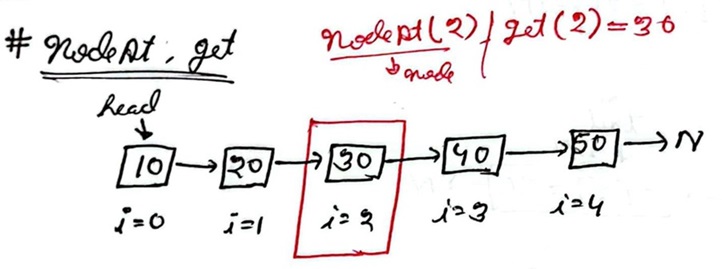 # nodeAt, get
nodeAt(2) / get(2) = 30
node
head
10 → 20 → 30 → 40 → 50 → N
i=0 i=1 i=2 i=3 i=4